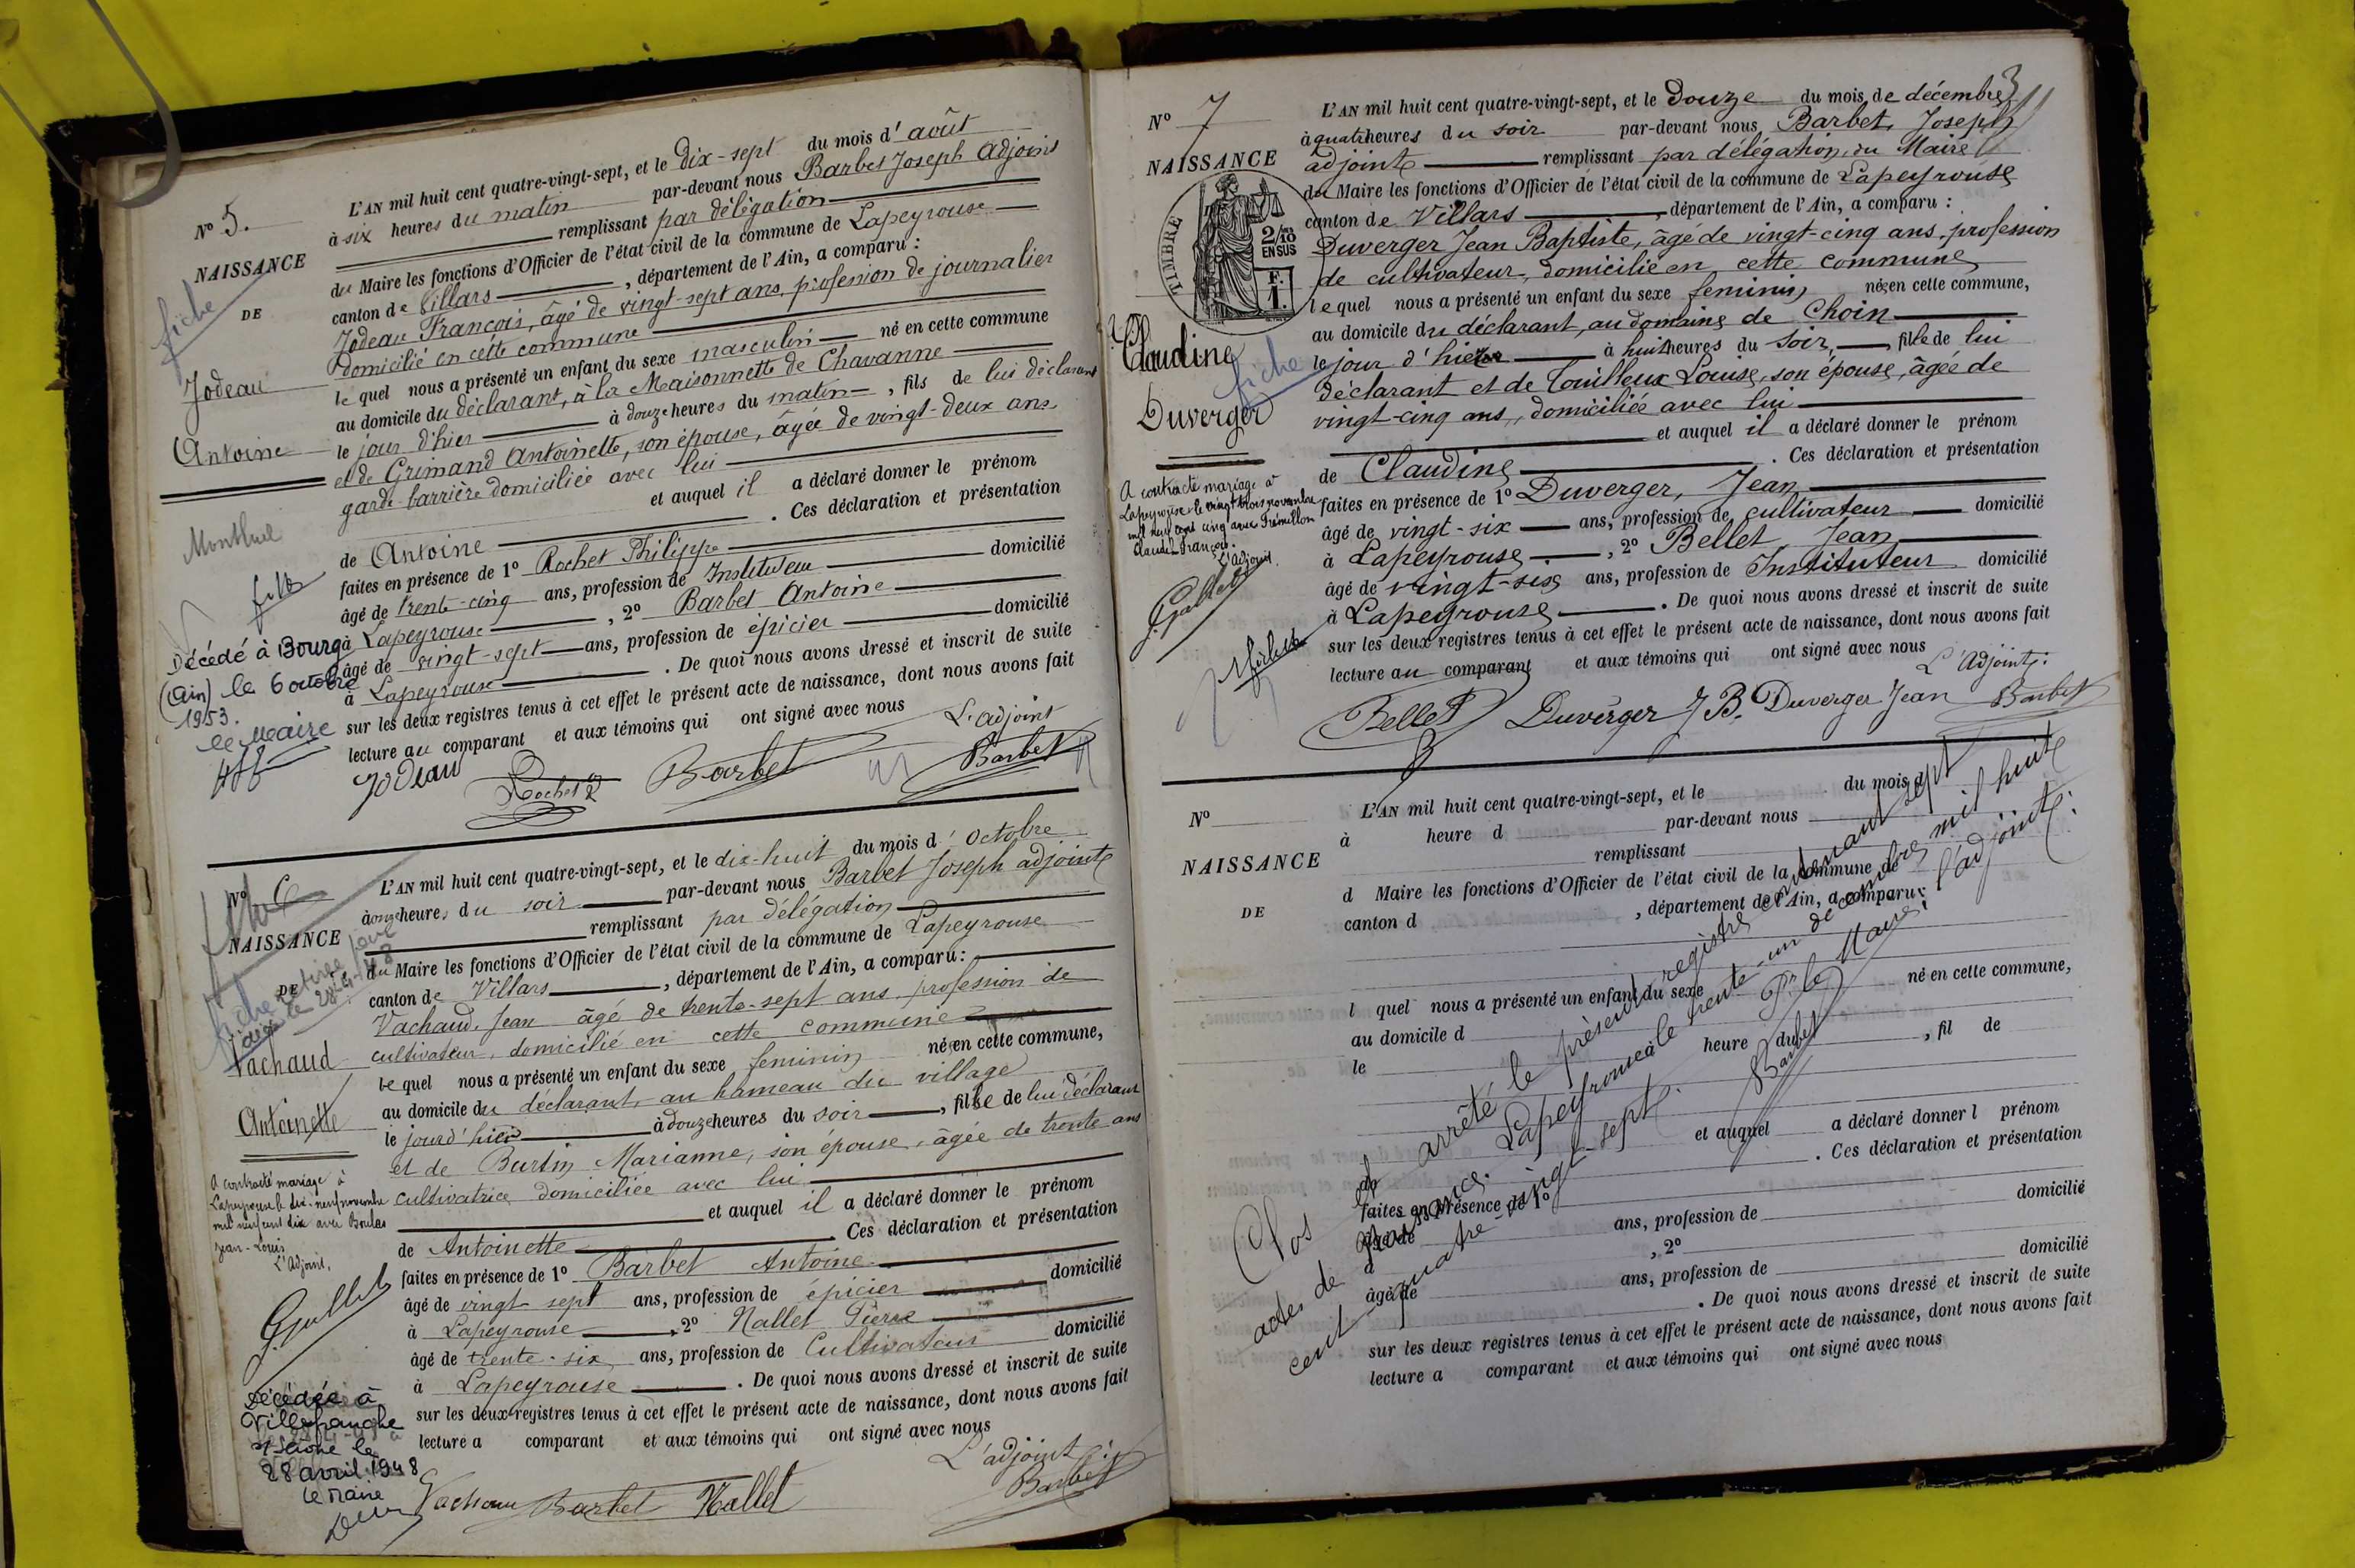 N° 5.
NAISSANCE
DE
fiche
Jodeau
Antoine
Décédé à Bourg
(Ain) le 6 octobre
1953.
le Maire
L'AN mil huit cent quatre-vingt-sept, et le dix-sept du mois d'août
à six heures du matin par-devant nous Barbet Joseph Adjoint
remplissant par délégation
du Maire les fonctions d'Officier de l'état civil de la commune de Lapeyrouse
canton de Villars, département de l'Ain, a comparu :
Jodeau François, âgé de vingt-sept ans, profession de journalier
domicilié en cette commune
lequel nous a présenté un enfant du sexe masculin né en cette commune
au domicile du déclarant, à la Maisonnette de Chavanne
le jour d'hier à douze heures du matin, fils de lui déclarant
et de Grimand Antoinette, son épouse, âgée de vingt-deux ans
garde-barrière domiciliée avec lui
et auquel il a déclaré donner le prénom
de Antoine. Ces déclaration et présentation
faites en présence de 1° Rochet Philippe
âgé de trente-cinq ans, profession de Instituteur domicilié
à Lapeyrouse, 2° Barbet Antoine
âgé de vingt-sept ans, profession de épicier domicilié
à Lapeyrouse. De quoi nous avons dressé et inscrit de suite
sur les deux registres tenus à cet effet le présent acte de naissance, dont nous avons fait
lecture au comparant et aux témoins qui ont signé avec nous
L'adjoint
Jodeau Rochet Barbet Barbet
N° 6
NAISSANCE
DE
fiche
Vachaud
Antoinette
A contracté mariage à
Lapeyrouse le dix-neuf novembre
mil neuf cent dix avec Boulas
Jean-Louis
L'Adjoint,
Décédée à
Villefranche
s/ Saône le
28 avril 1948
Le Maire
L'AN mil huit cent quatre-vingt-sept, et le dix-huit du mois d'Octobre
à onze heures du soir par-devant nous Barbet Joseph adjoint
remplissant par délégation
du Maire les fonctions d'Officier de l'état civil de la commune de Lapeyrouse
canton de Villars, département de l'Ain, a comparu :
Vachaud, Jean âgé de trente-sept ans profession de
cultivateur, domicilié en cette commune
lequel nous a présenté un enfant du sexe feminin née en cette commune,
au domicile du déclarant, au hameau du village
le jour d'hier à douze heures du soir, fille de lui déclarant
et de Burtin Marianne, son épouse, âgée de trente ans
cultivatrice domiciliée avec lui
et auquel il a déclaré donner le prénom
de Antoinette. Ces déclaration et présentation
faites en présence de 1° Barbet Antoine
âgé de vingt sept ans, profession de épicier domicilié
à Lapeyrouse, 2° Nallet Pierre
âgé de trente-six ans, profession de Cultivateur domicilié
à Lapeyrouse. De quoi nous avons dressé et inscrit de suite
sur les deux registres tenus à cet effet le présent acte de naissance, dont nous avons fait
lecture a comparant et aux témoins qui ont signé avec nous
L'adjoint :
Vachau Barbet Nallet Barbet
N° 7
NAISSANCE
TIMBRE
2/10
EN SUS
F.
1.
fiche
Claudine
Duverger
A contracté mariage à
Lapeyrouse le vingt trois novembre
mil neuf cent cinq avec Trémillon
Claude-François.
L'Adjoint.
3
L'AN mil huit cent quatre-vingt-sept, et le douze du mois de décembre
à quatre heures du soir par-devant nous Barbet, Joseph
adjoint remplissant par délégation, du Maire
du Maire les fonctions d'Officier de l'état civil de la commune de Lapeyrouse
canton de Villars, département de l'Ain, a comparu :
Duverger Jean Baptiste, âgé de vingt-cinq ans, profession
de cultivateur, domicilié en cette commune
lequel nous a présenté un enfant du sexe feminin née en cette commune,
au domicile du déclarant, au domaine de Choin
le jour d'hier à huit heures du soir, fille de lui
déclarant et de Touilleux Louise, son épouse, âgée de
vingt-cinq ans, domiciliée avec lui
et auquel il a déclaré donner le prénom
de Claudine. Ces déclaration et présentation
faites en présence de 1° Duverger, Jean
âgé de vingt-six ans, profession de cultivateur domicilié
à Lapeyrouse, 2° Bellet Jean
âgé de vingt-six ans, profession de Instituteur domicilié
à Lapeyrouse. De quoi nous avons dressé et inscrit de suite
sur les deux registres tenus à cet effet le présent acte de naissance, dont nous avons fait
lecture au comparant et aux témoins qui ont signé avec nous
L'Adjoint :
Bellet Duverger J B. Duverger Jean Barbet
N°
NAISSANCE
DE
L'AN mil huit cent quatre-vingt-sept, et le du mois d
à heure d par-devant nous
remplissant
d Maire les fonctions d'Officier de l'état civil de la commune de
canton d , département de l'Ain, a comparu :
l quel nous a présenté un enfant du sexe né en cette commune,
au domicile d
le heure du , fil de
et auquel a déclaré donner l prénom
d . Ces déclaration et présentation
faites en présence de 1°
âgé de ans, profession de domicilié
à , 2°
âgé de ans, profession de domicilié
à . De quoi nous avons dressé et inscrit de suite
sur les deux registres tenus à cet effet le présent acte de naissance, dont nous avons fait
lecture a comparant et aux témoins qui ont signé avec nous
Clos et arrêté le présent registre contenant sept
actes de naissance. Lapeyrouse le trente-un décembre mil huit
cent quatre-vingt-sept.
Pr le Maire : l'adjoint :
Barbet